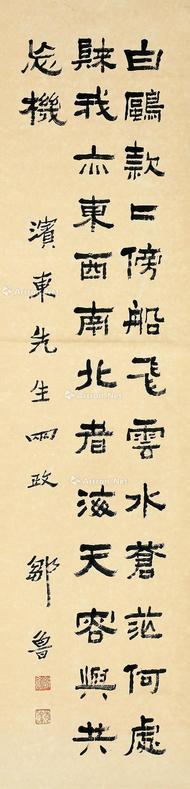 白鷗款二傍船飛雲水蒼茫何處
歸我亦東西南北者海天容與共
忘機
濱東先生兩政 鄒魯
Artron.Net